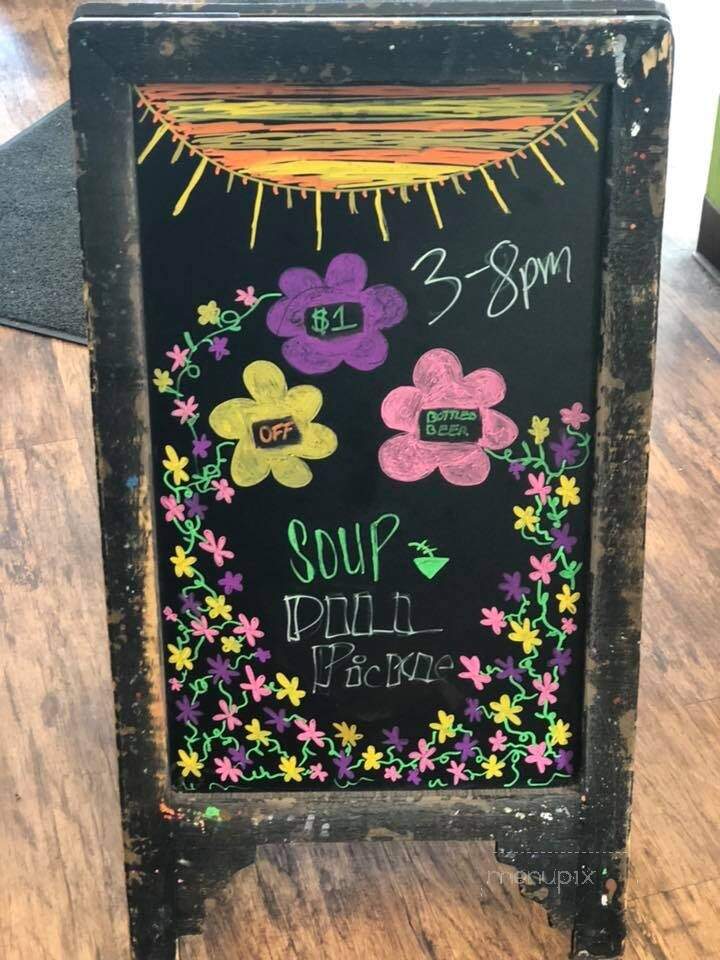 3-8pm
$1
OFF
BOTTLED
BEER
SOUP
DILL
PicKle
menupix